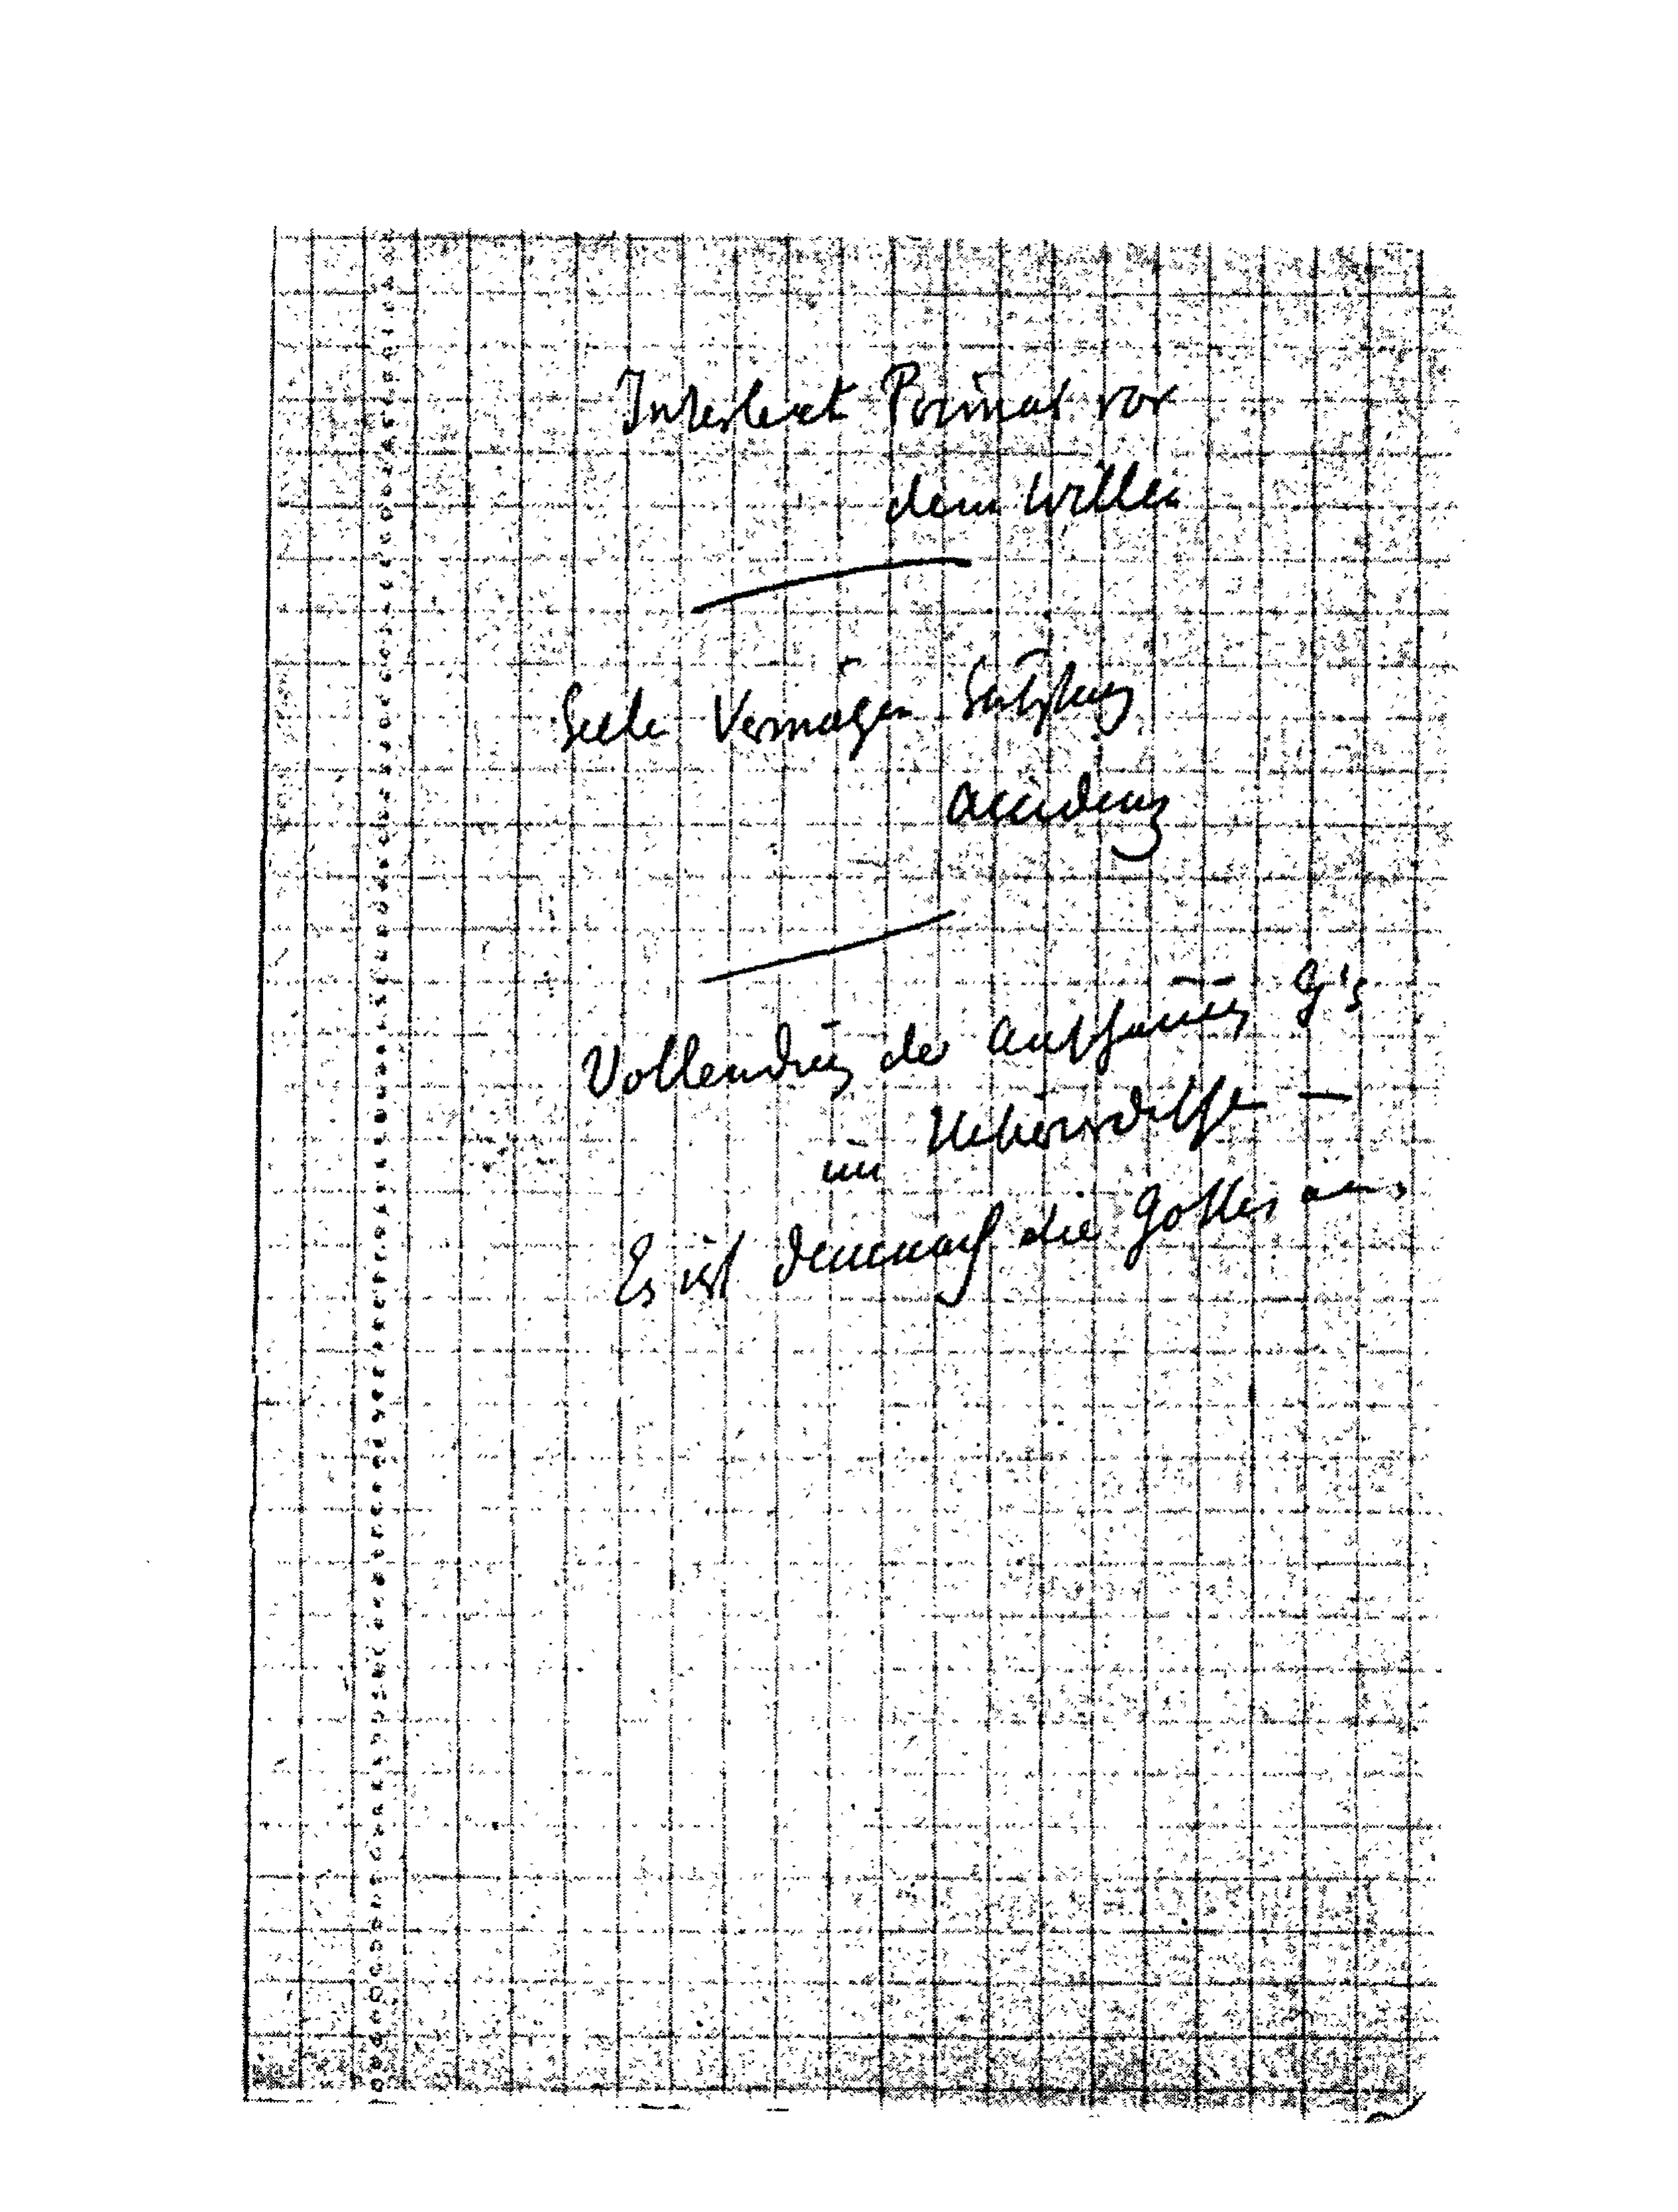 Intellect Primat vor
dem Willen
Seele Vermögen Substanz
Accidenz
Vollendung der Auffassung G's
im
Es ist demnach die Gottes